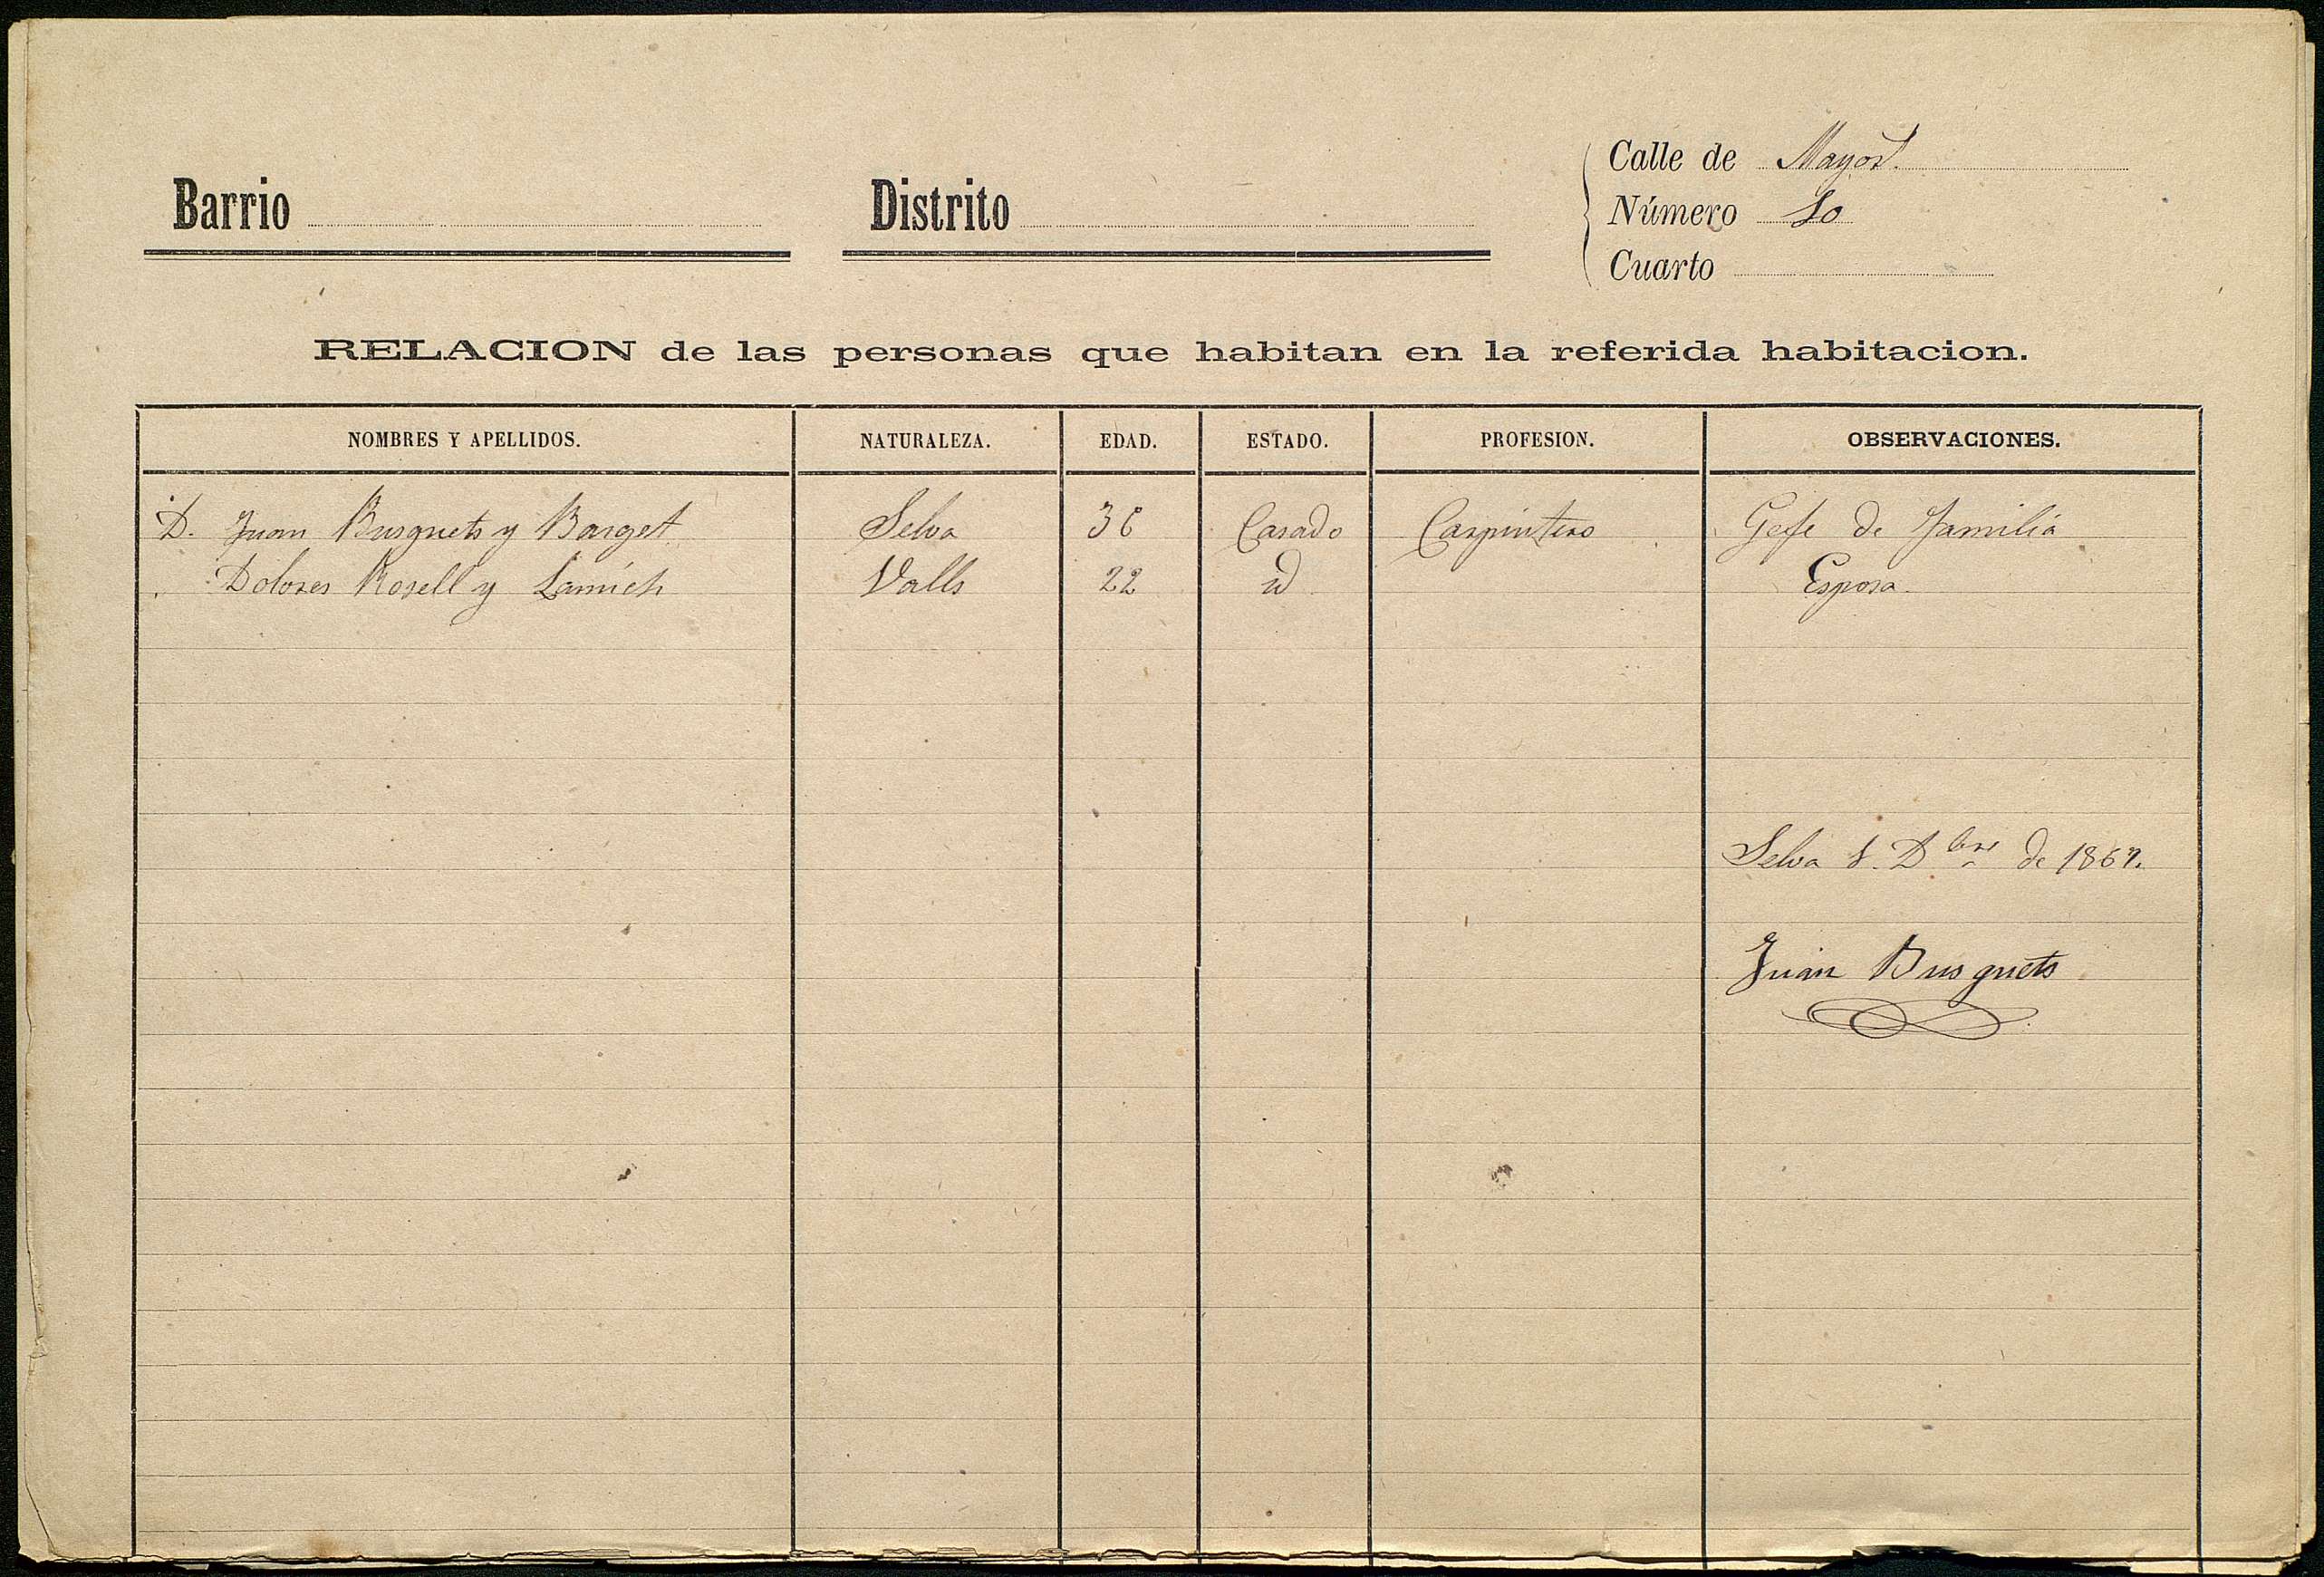 Calle de Mayor.
Barrio Distrito Número 10
Cuarto
RELACION de las personas que habitan en la referida habitacion.
NOMBRES Y APELLIDOS. NATURALEZA. EDAD. ESTADO. PROFESION. OBSERVACIONES.
D. Juan Busquets y Barget Selva 36 Casado Carpintero Gefe de familia
Dolores Rosell y Lamich Valls 22 id Esposa.
Selva 1. Dbre de 1867.
Juan Busquets